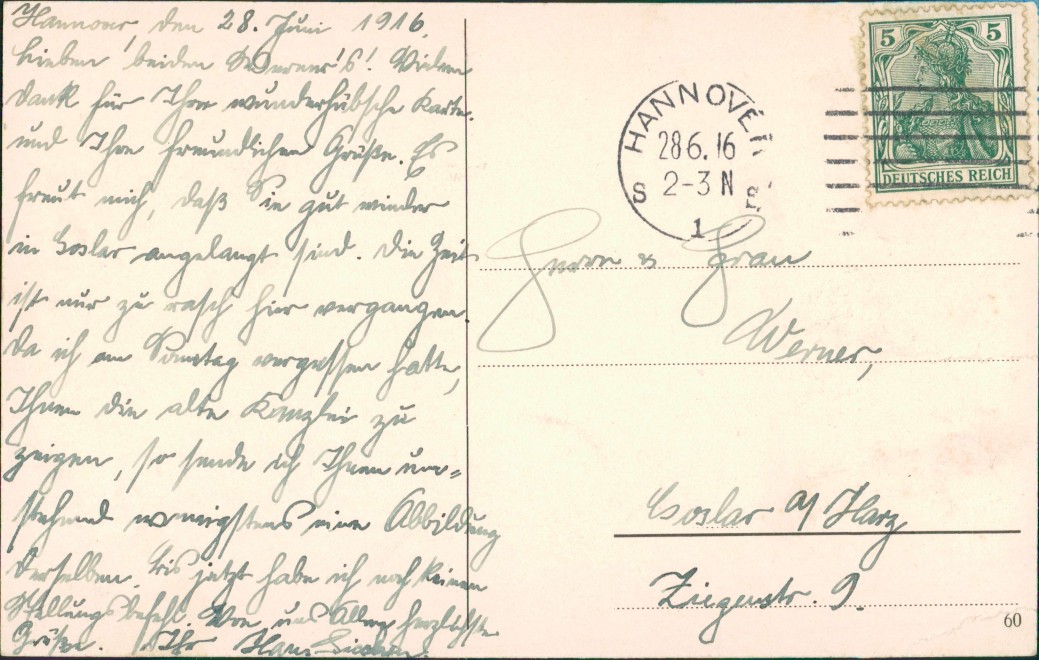 Hannover, den 28. Juni 1916.
Lieben beiden Werner's! Vielen
Dank für Ihre wunderhübsche Karte
und Ihre freundlichen Grüße. Es
freut mich, daß Sie gut wieder
in Goslar angelangt sind. Die Zeit
ist nur zu rasch hier vergangen.
Da ich am Sonntag vergessen hatte,
Ihnen die alte Kanzlei zu
zeigen, so sende ich Ihnen um-
stehend wenigstens eine Abbildung
derselben. Bis jetzt habe ich noch keinen
Stellungsbefehl. Von uns Allen herzlichste
Grüße. Ihr Hans
HANNOVER
28.6.16
2-3 N
S
1
5 5
DEUTSCHES REICH
Herrn & Frau
Werner,
Goslar a/Harz
Ziegenstr. 9.
60